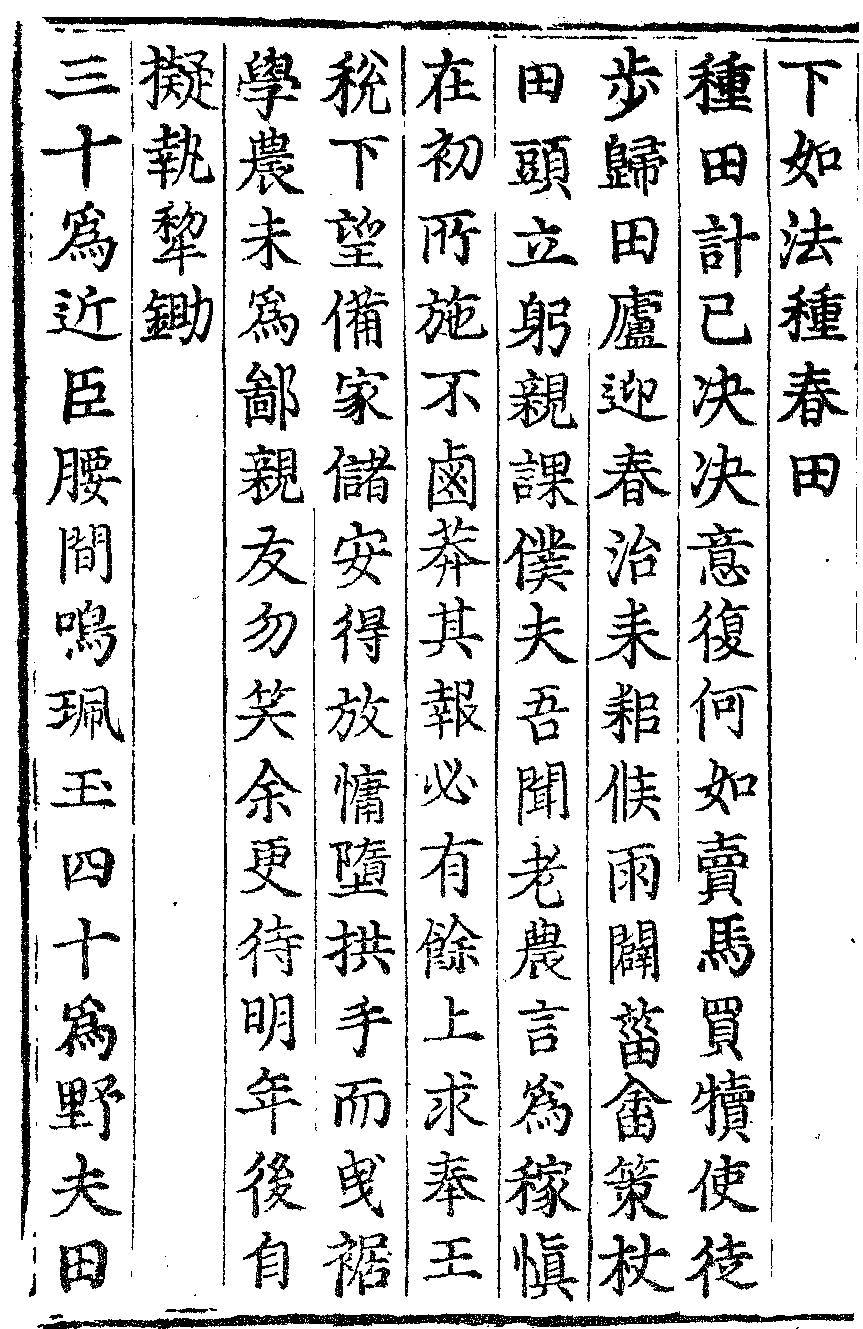 下如法種春田
種田計已决决意復何如賣馬買犢使徒
步歸田廬迎春治耒耜候雨闢菑畬策杖
田頭立躬親課僕夫吾聞老農言爲稼慎
在初所施不鹵莽其報必有餘上求奉王
稅下望備家儲安得放慵墮拱手而曳裾
學農未爲鄙親友勿笑余更待明年後自
擬執犂鋤
三十爲近臣腰間鳴珮玉四十爲野夫田